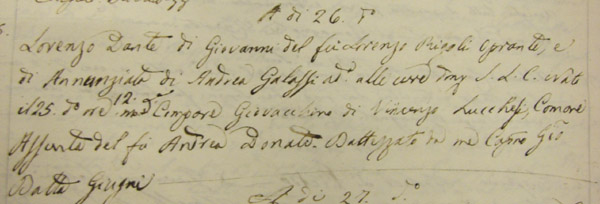 A di 26. d.º
Lorenzo Dante di Giovanni del fù Lorenzo Rigoli oprante, e
di Annunziata di Andrea Galassi ad. alle cure S. L. C. nato
il 25. d.º ore 12. Compare Giovacchino di Vincenzo Lucchesi, Comare
Assunta del fù Andrea Donati. Battezzato da me
Batta Giugni
A di 27. d.º